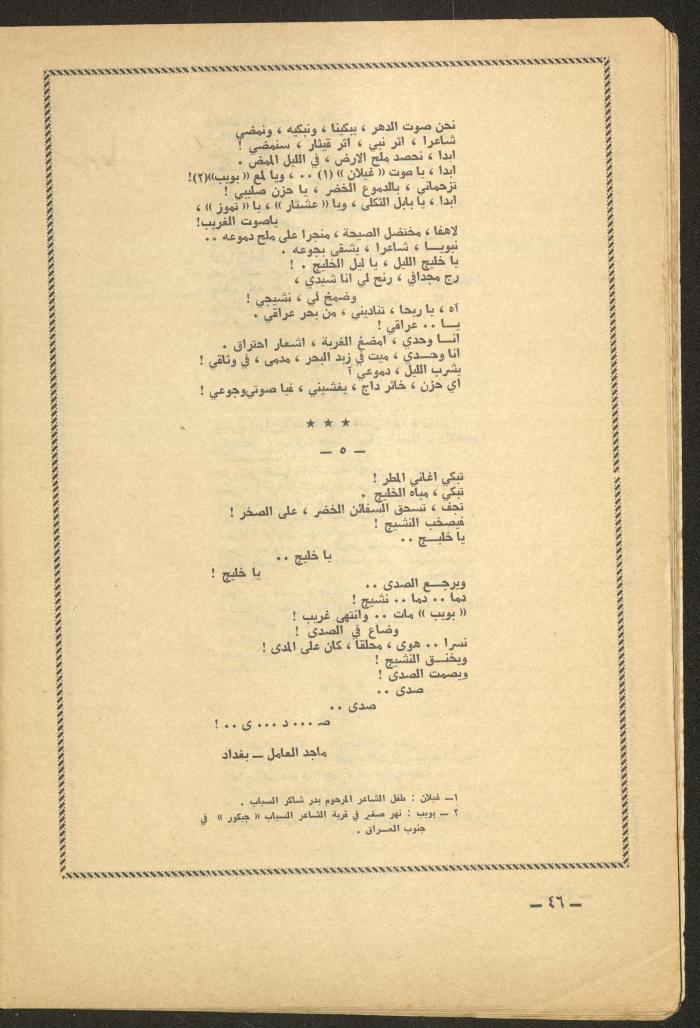 نحن صوت الدهر ، يبكينا ، ونبكيه ، ونمضي
شاعرا ، اثر نبي ، اثر قيثار ، سنمضي !
ابدا ، نحصد ملح الارض ، في الليل الممض .
ابدا ، يا صوت (( غيلان )) (١) ٠٠ ، ويا لمع (( بويب))(٢)!
تزحماني ، بالدموع الخضر ، يا حزن صليبي !
ابدا ، يا بابل الثكلى ، ويا (( عشتار )) ، يا (( تموز )) ،
ياصوت الغريب!
لاهفا ، مختضل الصيحة ، منجرا على ملح دموعه ٠٠
نبويــا ، شاعرا ، يشقى بجوعه .
يا خليج الليل ، يا ليل الخليج . !
رج مجدافي ، رنح لي انا شيدي ،
وضمخ لي ، نشيجي !
آه ، يا ريحا ، تناديني ، من بحر عراقي .
يــا ٠٠ عراقي !
انــا وحدي ، امضغ الغربة ، اشعار احتراق .
انا وحــدي ، ميت في زبد البحر ، مدمى ، في وثاقي !
يشرب الليل ، دموعي آ
اي حزن ، خائر داج ، يغشيني ، فيا صوتي‌وجوعي !
★ ★ ★
ــ ٥ ــ
تبكي اغاني المطر !
تبكي ، مياه الخليج .
تجف ، تسحق السفائن الخضر ، على الصخر !
فيصخب النشيج !
يا خليــج ٠٠
يا خليج ٠٠
يا خليج !
ويرجــع الصدى ٠٠
دما ٠٠ دما ٠٠ نشيج !
(( بويب )) مات ٠٠ وانتهى غريب !
وضاع في الصدى !
نسرا ٠٠ هوى ، محلقا ، كان على المدى !
ويخنــق النشيج !
ويصمت الصدى !
صدى ٠٠
صدى ٠٠
صـ ٠٠٠ د ٠٠٠ ى ٠٠ !
ماجد العامل ــ بغداد
١ــ غيلان : طفل الشاعر المرحوم بدر شاكر السياب .
٢ ــ بويب : نهر صغير في قرية الشاعر السياب (( جيكور )) في
جنوب العــراق .
ــ ٤٦ ــ